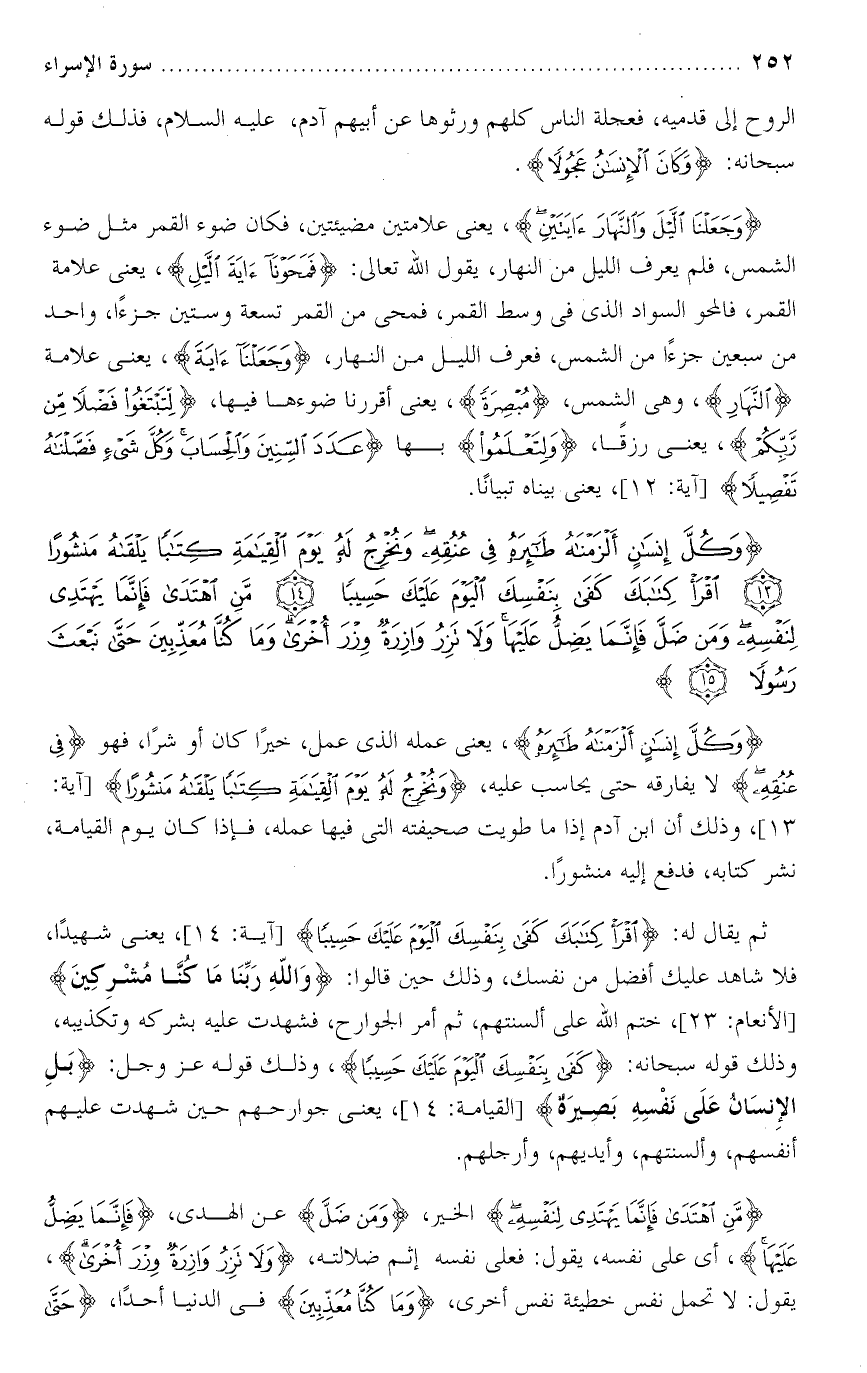 ٢٥٢ ........................................................................ سورة الإسراء
الروح إلى قدميه، فعجلة الناس كلهم ورثوها عن أبيهم آدم، عليه السلام، فذلك قوله
سبحانه: ﴿وَكَانَ ٱلْإِنسَٰنُ عَجُولًا﴾ .
﴿وَجَعَلْنَا ٱلَّيْلَ وَٱلنَّهَارَ ءَايَتَيْنِ ۖ﴾، يعنى علامتين مضيئتين، فكان ضوء القمر مثل ضوء
الشمس، فلم يعرف الليل من النهار، يقول الله تعالى: ﴿فَمَحَوْنَآ ءَايَةَ ٱلَّيْلِ﴾، يعنى علامة
القمر، فالمحو السواد الذى فى وسط القمر، فمحى من القمر تسعة وستين جزءًا، واحد
من سبعين جزءًا من الشمس، فعرف الليل من النهار، ﴿وَجَعَلْنَآ ءَايَةَ﴾، يعنى علامة
﴿ٱلنَّهَارِ﴾، وهى الشمس، ﴿مُبْصِرَةً﴾، يعنى أقررنا ضوءها فيها، ﴿لِّتَبْتَغُوا۟ فَضْلًا مِّن
رَّبِّكُمْ﴾، يعنى رزقًا، ﴿وَلِتَعْلَمُوا۟﴾ بها ﴿عَدَدَ ٱلسِّنِينَ وَٱلْحِسَابَ ۚ وَكُلَّ شَىْءٍ فَصَّلْنَٰهُ
تَفْصِيلًا﴾ [آية: ١٢]، يعنى بيناه تبيانًا.
﴿وَكُلَّ إِنسَٰنٍ أَلْزَمْنَٰهُ طَٰٓئِرَهُۥ فِى عُنُقِهِۦ ۖ وَنُخْرِجُ لَهُۥ يَوْمَ ٱلْقِيَٰمَةِ كِتَٰبًا يَلْقَىٰهُ مَنشُورًا
١٣ ٱقْرَأْ كِتَٰبَكَ كَفَىٰ بِنَفْسِكَ ٱلْيَوْمَ عَلَيْكَ حَسِيبًا ١٤ مَّنِ ٱهْتَدَىٰ فَإِنَّمَا يَهْتَدِى
لِنَفْسِهِۦ ۖ وَمَن ضَلَّ فَإِنَّمَا يَضِلُّ عَلَيْهَا ۚ وَلَا تَزِرُ وَازِرَةٌ وِزْرَ أُخْرَىٰ ۗ وَمَا كُنَّا مُعَذِّبِينَ حَتَّىٰ نَبْعَثَ
رَسُولًا ١٥ ﴾
﴿وَكُلَّ إِنسَٰنٍ أَلْزَمْنَٰهُ طَٰٓئِرَهُۥ﴾، يعنى عمله الذى عمل، خيرًا كان أو شرًا، فهو ﴿فِى
عُنُقِهِۦ ۖ﴾ لا يفارقه حتى يحاسب عليه، ﴿وَنُخْرِجُ لَهُۥ يَوْمَ ٱلْقِيَٰمَةِ كِتَٰبًا يَلْقَىٰهُ مَنشُورًا﴾ [آية:
١٣]، وذلك أن ابن آدم إذا ما طويت صحيفته التى فيها عمله، فإذا كان يوم القيامة،
نشر كتابه، فدفع إليه منشورًا.
ثم يقال له: ﴿ٱقْرَأْ كِتَٰبَكَ كَفَىٰ بِنَفْسِكَ ٱلْيَوْمَ عَلَيْكَ حَسِيبًا﴾ [آية: ١٤]، يعنى شهيدًا،
فلا شاهد عليك أفضل من نفسك، وذلك حين قالوا: ﴿وَاللَّهِ رَبِّنَا مَا كُنَّا مُشْرِكِينَ﴾
[الأنعام: ٢٣]، ختم الله على ألسنتهم، ثم أمر الجوارح، فشهدت عليه بشركه وتكذيبه،
وذلك قوله سبحانه: ﴿كَفَىٰ بِنَفْسِكَ ٱلْيَوْمَ عَلَيْكَ حَسِيبًا﴾، وذلك قوله عز وجل: ﴿بَلِ
الإِنسَانُ عَلَى نَفْسِهِ بَصِيرَةٌ﴾ [القيامة: ١٤]، يعنى جوارحهم حين شهدت عليهم
أنفسهم، وألسنتهم، وأيديهم، وأرجلهم.
﴿مَّنِ ٱهْتَدَىٰ فَإِنَّمَا يَهْتَدِى لِنَفْسِهِۦ ۖ﴾ الخير، ﴿وَمَن ضَلَّ﴾ عن الهدى، ﴿فَإِنَّمَا يَضِلُّ
عَلَيْهَا ۚ﴾، أى على نفسه، يقول: فعلى نفسه إثم ضلالته، ﴿وَلَا تَزِرُ وَازِرَةٌ وِزْرَ أُخْرَىٰ ۗ﴾،
يقول: لا تحمل نفس خطيئة نفس أخرى، ﴿وَمَا كُنَّا مُعَذِّبِينَ﴾ فى الدنيا أحدًا، ﴿حَتَّىٰ